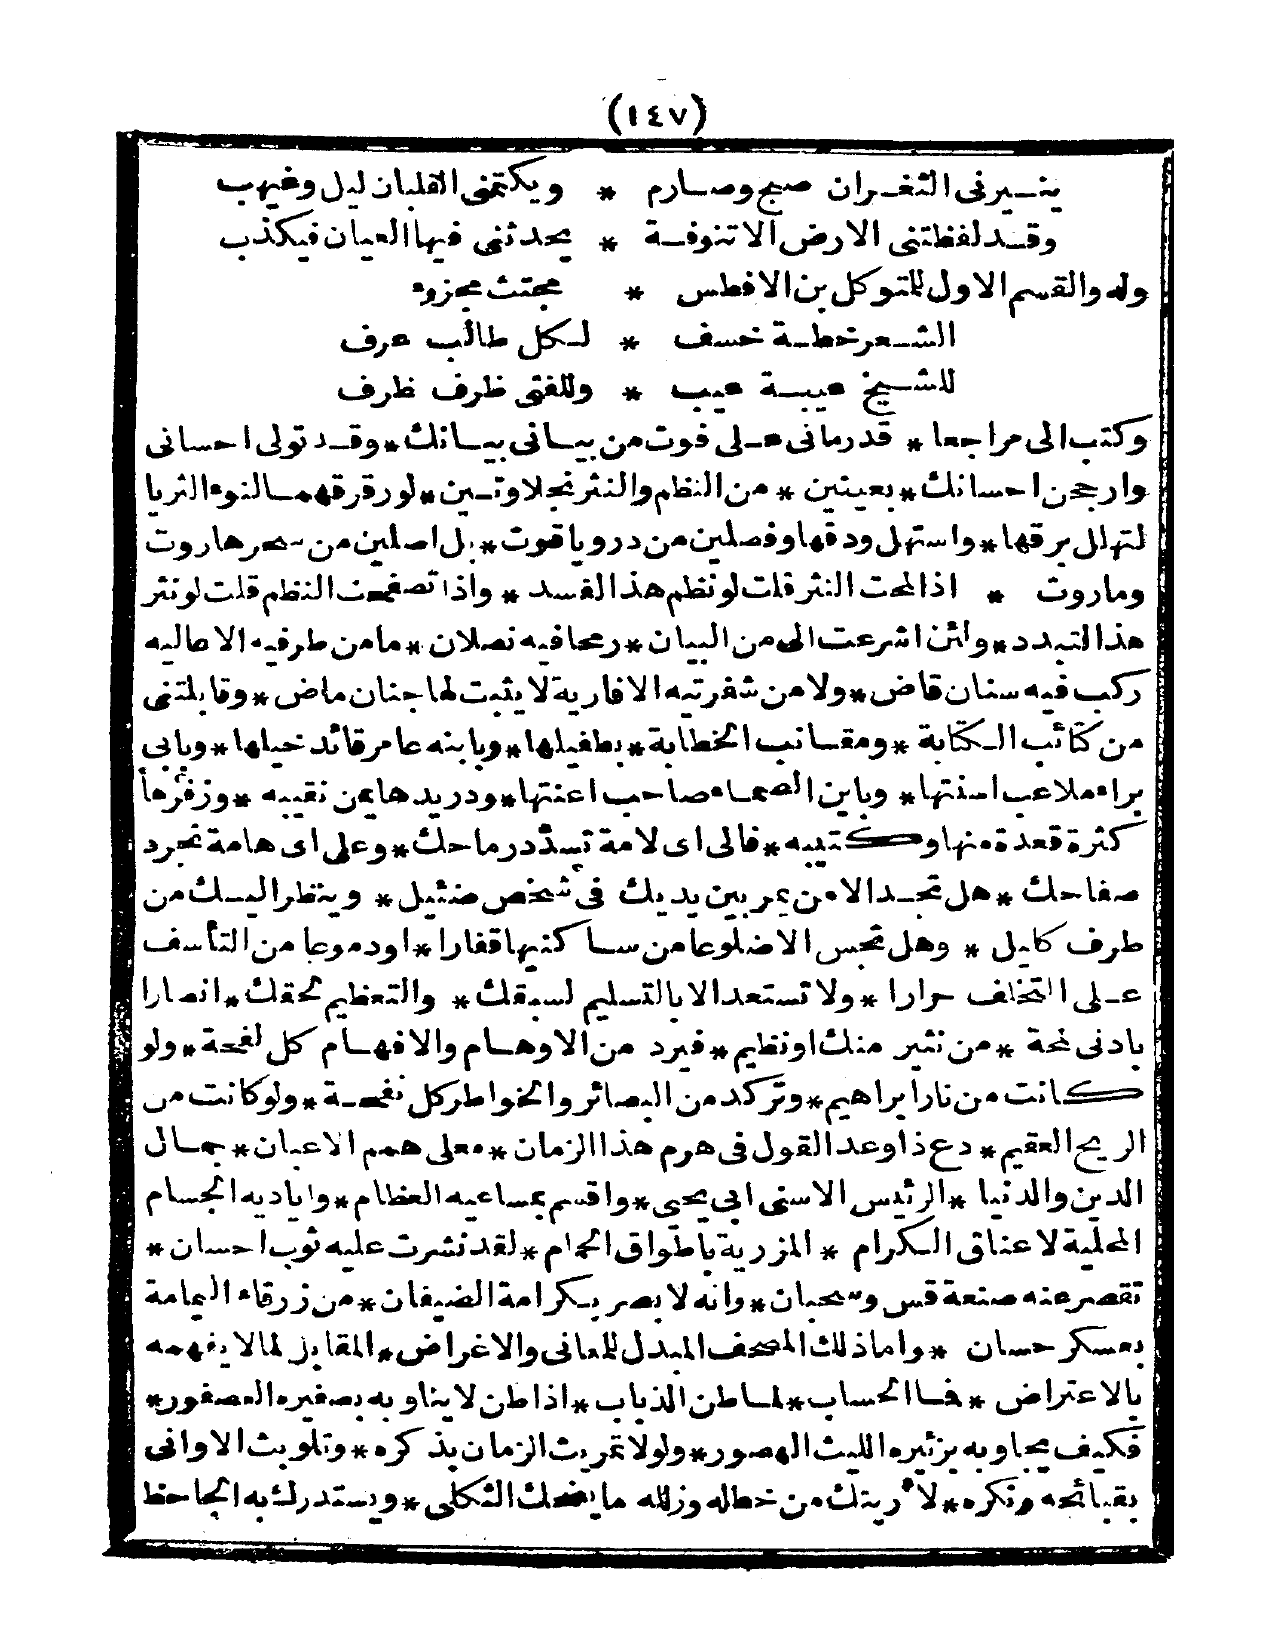 (١٤٧)
ينـير نى الثغـران صبح وصـارم * ويكتمنى القلبان ليل وغيهب
وقـد لفظتنى الارض الا تنوفـة * يحدثنى فيها العيان فيكذب
وله والقسم الاول للتوكل بن الافطس * مجتث مجزوء
الشـعر خطـة خسف * لـكل طالب عرف
للشـيخ عيبـة عيب * وللفتى ظرف ظرف
وكتب الى مراجعا * قدرمانى عـلى فوت من بيـانى بيـانك * وقـد تولى احسانى
وارجحن احسانك * بعينين * من النظم والنثر نجلاوتـين * لو رقرقهمـا لنوء الثريا
لتهلل برقها * واستهل ودقها وفصلين من در وياقوت * بل اصلين من سحر هاروت
وماروت * اذا لمحت النثر قلت لو نظم هذا الفسد * واذا تصفحت النظم قلت لو نثر
هذا التبدد * ولئن اشرعت الى من البيان * رمحا فيه نصلان * ما من طرفيه الا عاليه
ركب فيه سنان قاض * ولا من شفرتيه الا فارية لا يثبت لها جنان ماض * وقابلتنى
من كتائب الـكتابة * ومقـانب الخطابة * بطفيلها * وبابنه عامر قائد خيلها * وبابى
براء ملاعب اسنتها * وباين الصماء صاحب اعنتها * ودريدها يمن نقيبه * وزفرها
كثرة قعدة منها وكتيبه * فالى اى لامة تسدّد رماحك * وعلى اى هامة تجرد
صفاحك * هل تجـد الا من يمر بين يديك فى شخص ضئيل * وينظر اليـك من
طرف كليل * وهل تحس الا ضلوعا من سـاكنيها قفارا * او دموعا من التأسف
عـلى التخلف حرارا * ولا تستعد الا بالتسليم لسبقك * والتعظيم لحقك * انصارا
بادنى لمحة * من نثير منك او نظيم * فيرد من الاوهـام والافهـام كل لفحة * ولو
كانت من نار ابراهيم * وتركد من البصائر والخواطر كل نفحـة * ولو كانت من
الريح العقيم * دع ذا وعد القول فى هرم هذا الزمان * معلى همم الاعيان * جمـال
الدين والدنيا * الرئيس الاسنى ابى يحيى * واقسم بمساعيه العظام * واياديه الجسام
المحلية لاعناق الـكرام * المزرية باطواق الحمام * لقد نشرت عليه ثوب احسان *
تقصر عنه صنعة قس وسحبان * وانه لابصر بـكرامة الضيفان * من زرقاء اليمامة
بعسكر حسان * واما ذلك المصحف المبدل للمعانى والاغراض * المقابل لما لا يفهمه
بالاعتراض * فـا الحساب * لمـا طن الذباب * اذا طن لا يناوبه بصفيره العصفور *
فكيف يجاوبه بزئيره الليث الهصور * ولولا تمريث الزمان بذكره * وتلويث الاوانى
بقبائحه ونكره * لأريتك من خطاله وزلله ما يضحك الثكلى * ويستدرك به الجاحظ